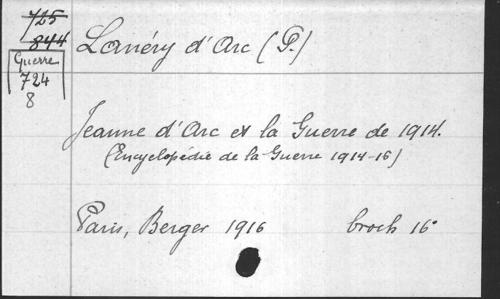 725
844
Guerre
724
8
Lanéry d'Arc (P.)
Jeanne d'Arc et la Guerre de 1914.
(Encyclopédie de la Guerre 1914-16)
Paris, Berger 1916 broch 16°